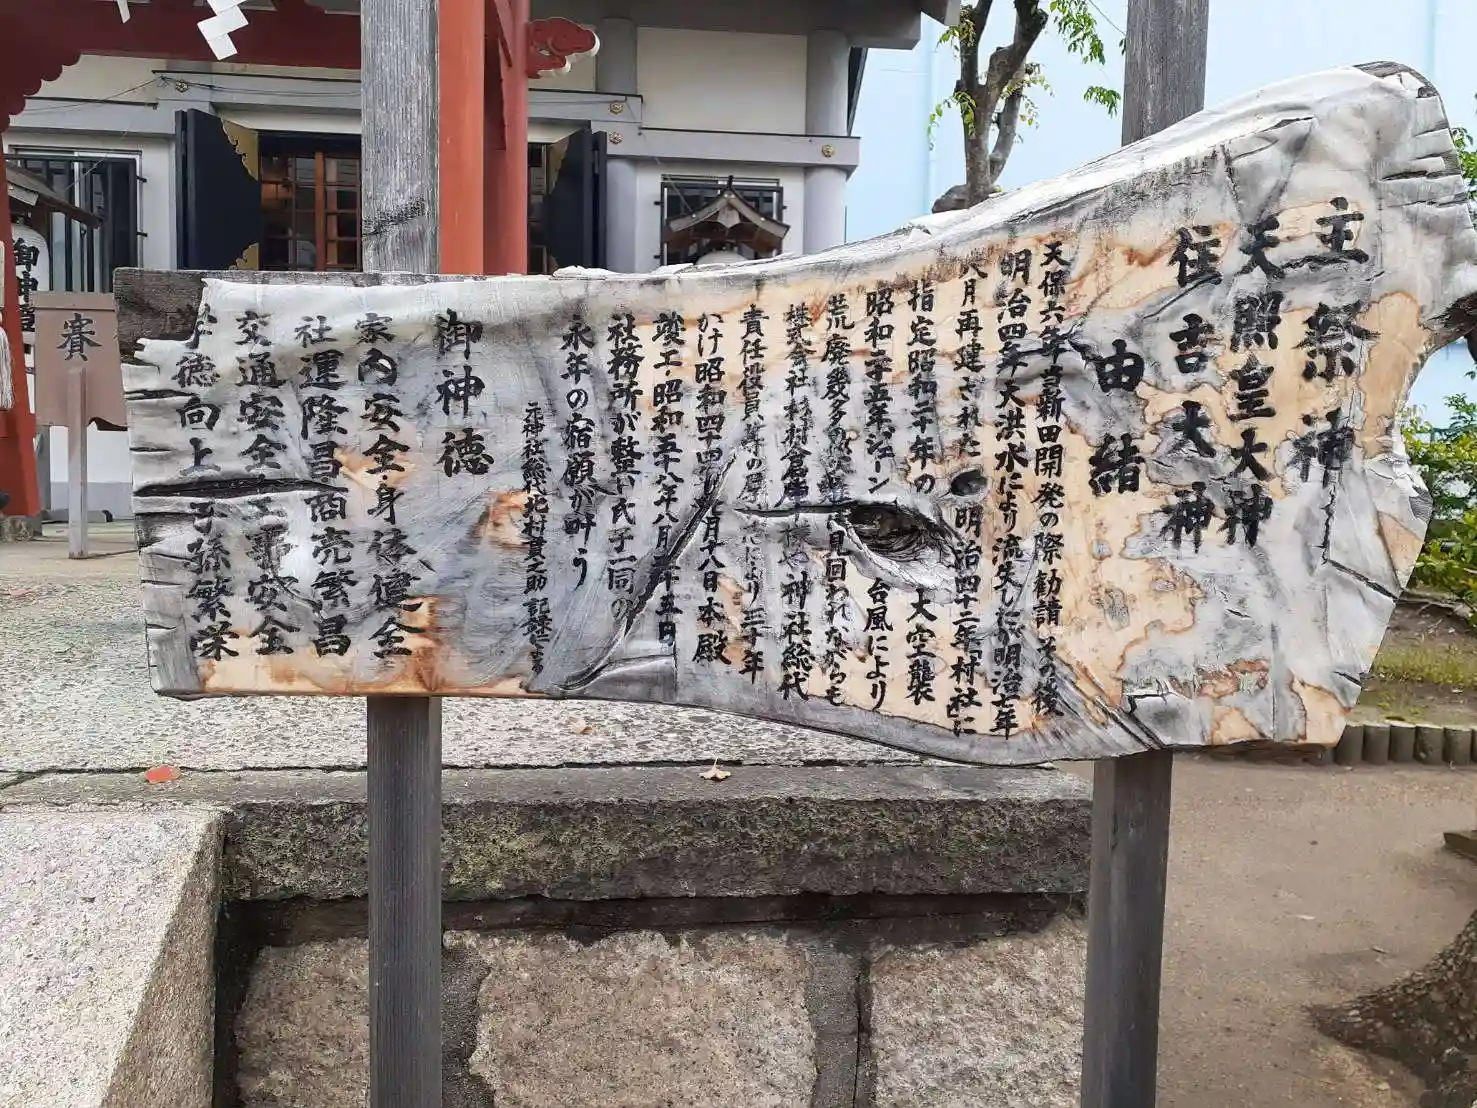 主祭神
天照皇大神
住吉大神
由結
天保六年 新田開発の際勧請 後
明治四年大洪水により流失 明治七年
八月再建された 明治四十二年村社に
指定昭和二十年の 大空襲
昭和二十五年ジェーン 台風により
荒廃幾多 見回われながらも
株式会社杉村倉庫 神社総代
責任役員 等の により二十年
かけ昭和四十四年 月十八日本殿
竣工昭和五十八年八月二十五日
社務所が整い氏子一同の
永年の宿願が叶う
元神社総代北村 之助 記
御神徳
家内安全身体健全
社運隆昌商売繁昌
交通安全工事安全
学徳向上子孫繁栄
賽
御神燈